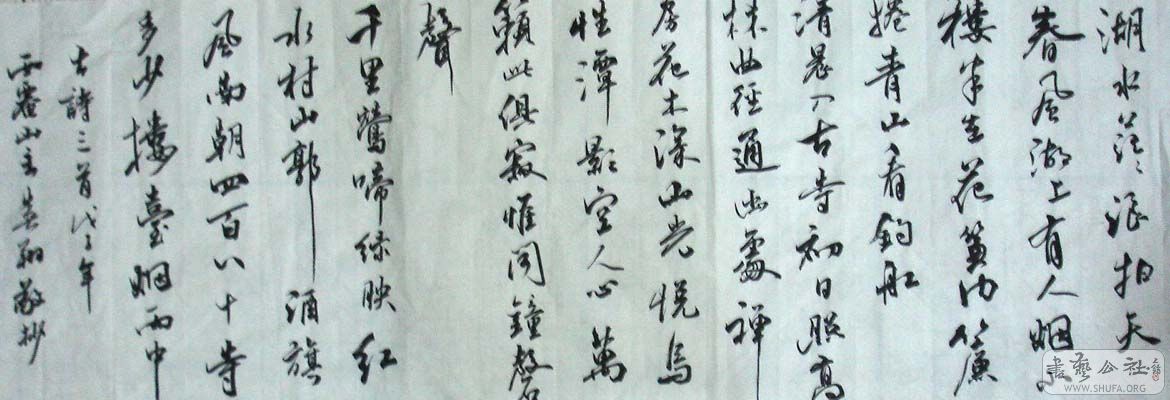 湖水茫茫浪拍天
春風湖上有人烟小
樓半出花籬內簾
捲青山看釣船
清晨入古寺初日照高
林曲徑通幽處禅
房花木深山光悦鳥
性潭影空人心萬
籟此俱寂惟聞鐘磬
聲
千里鶯啼綠映紅
水村山郭酒旗
風南朝四百八十寺
多少樓臺烟雨中
古詩三首戊子年
西塞山主敬抄
書藝公社
WWW.SHUFA.ORG